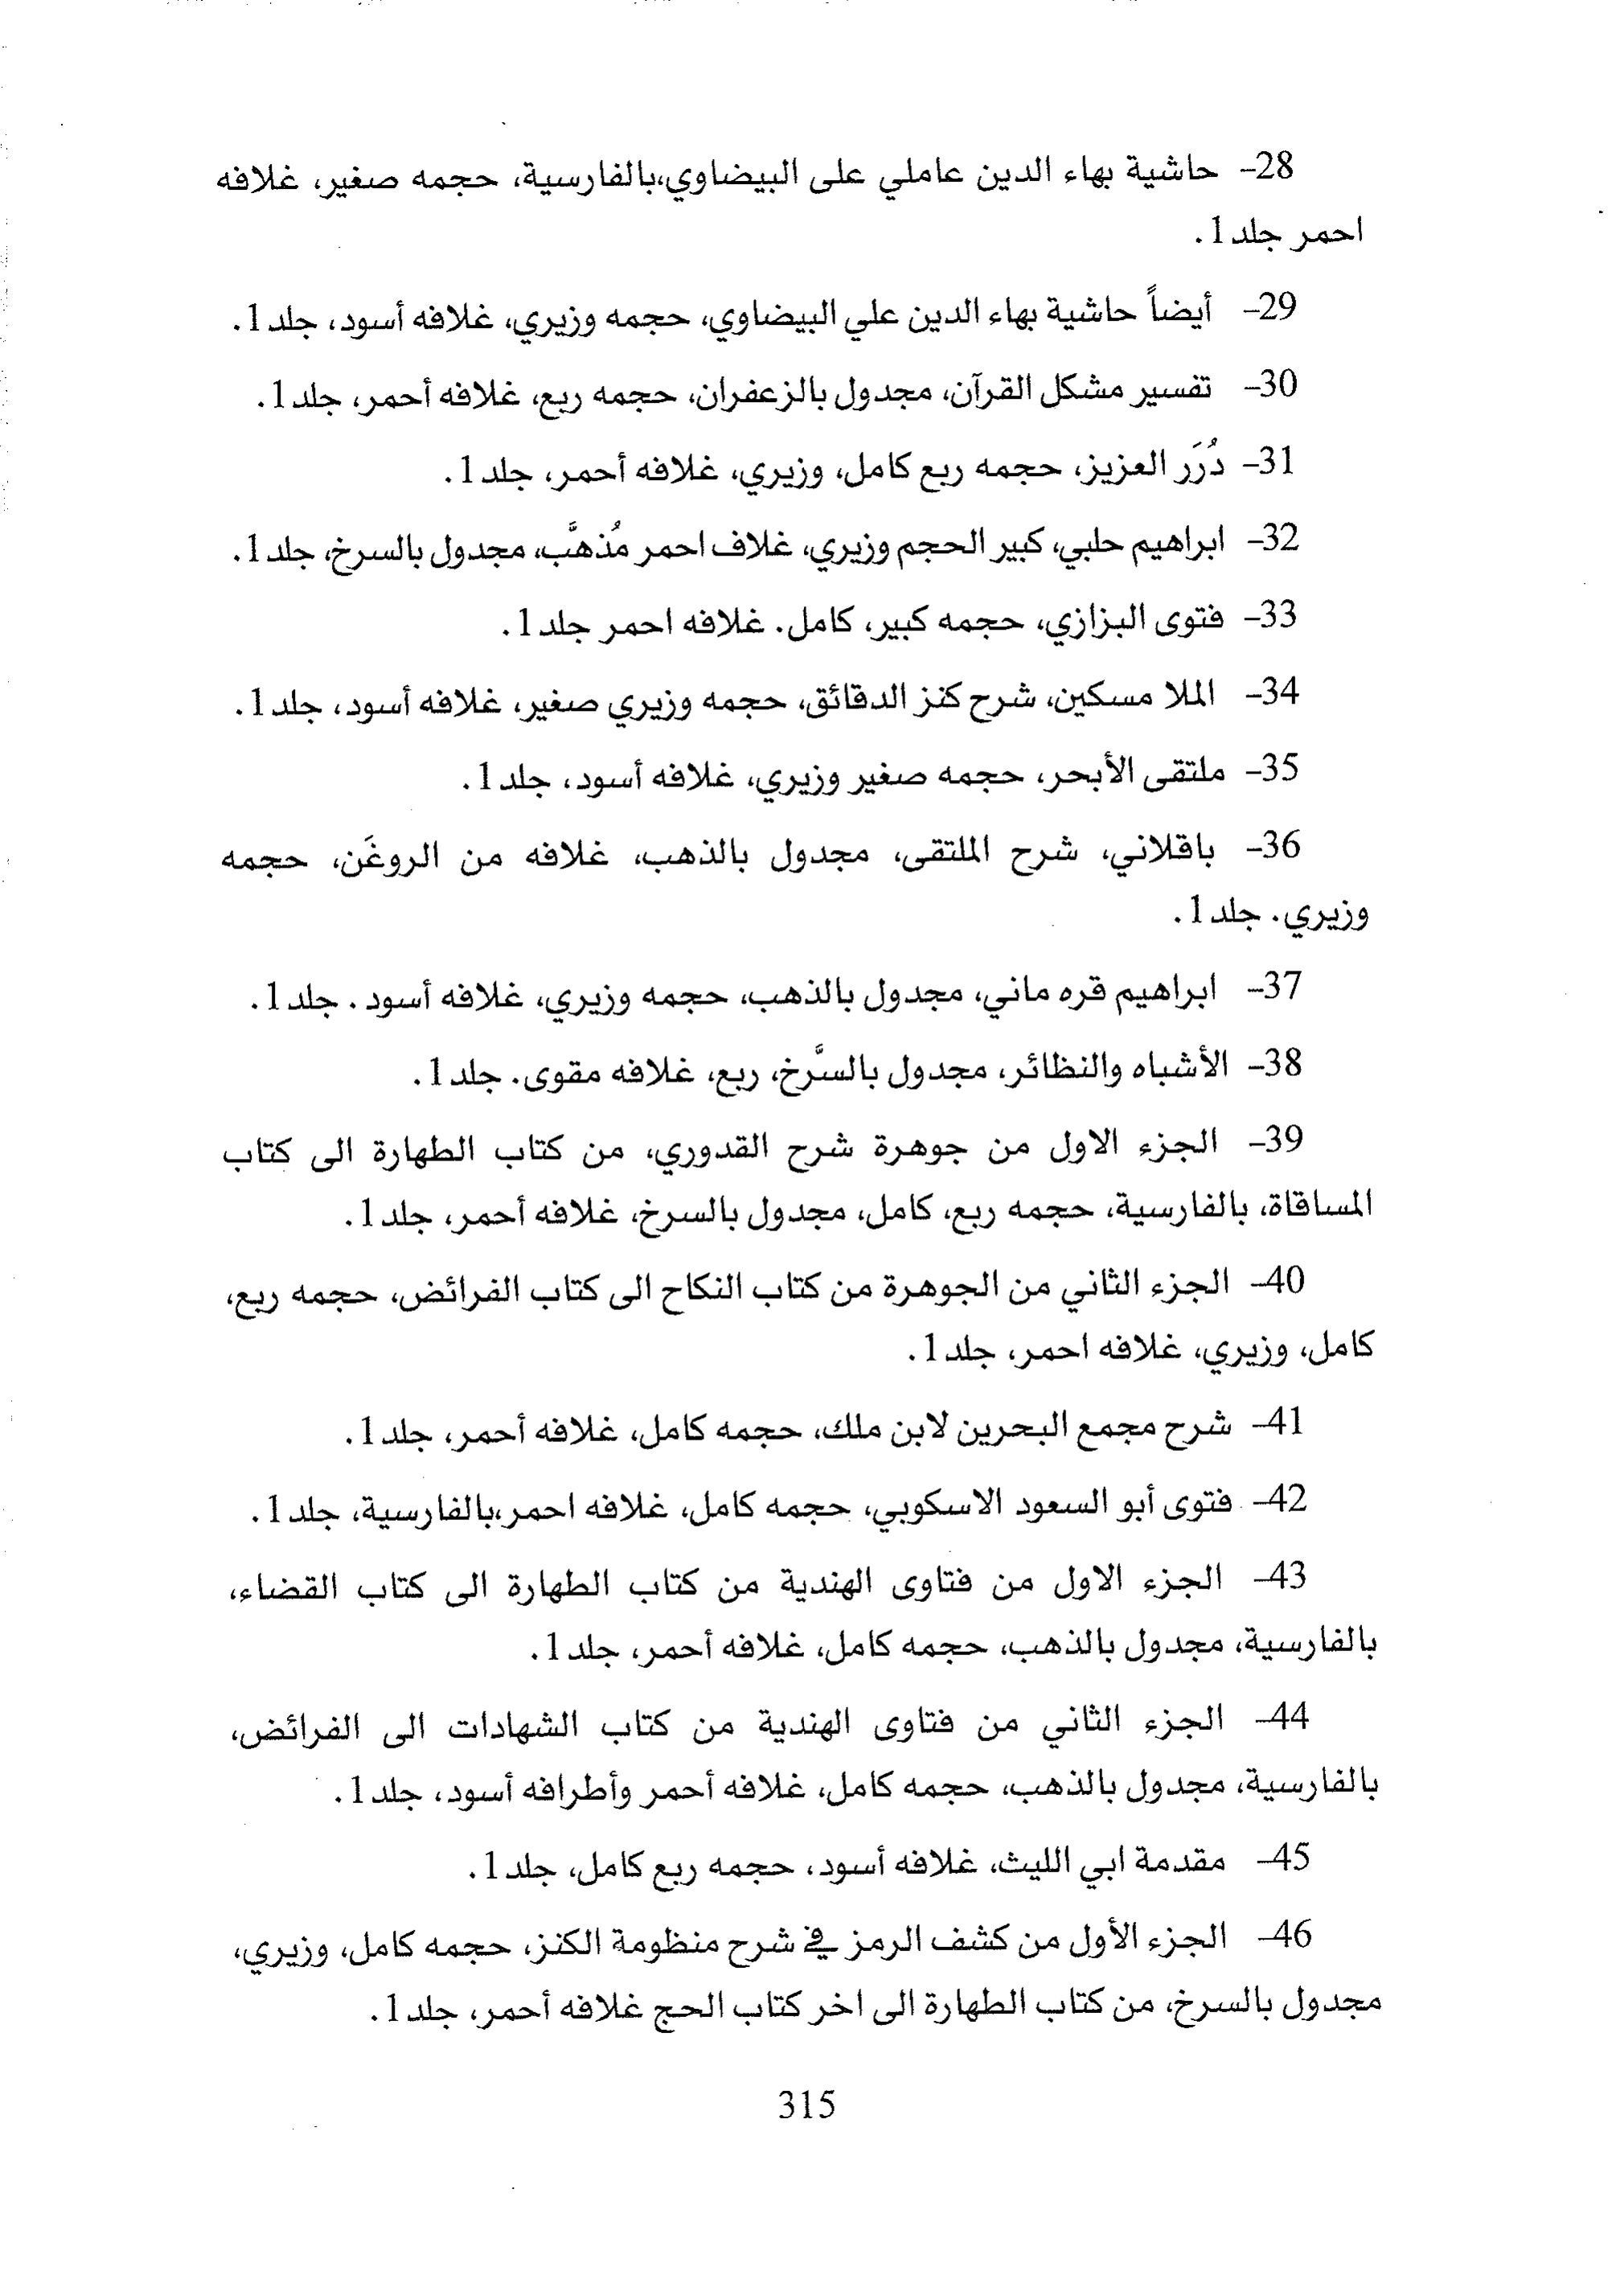 28- حاشية بهاء الدين عاملي على البيضاوي،بالفارسية، حجمه صغير، غلافه
احمر جلد1.
29- أيضاً حاشية بهاء الدين علي البيضاوي، حجمه وزيري، غلافه أسود، جلد1.
30- تفسير مشكل القرآن، مجدول بالزعفران، حجمه ربع، غلافه أحمر، جلد1.
31- دُرَر العزيز، حجمه ربع كامل، وزيري، غلافه أحمر، جلد1.
32- ابراهيم حلبي، كبير الحجم وزيري، غلاف احمر مُذهَّب، مجدول بالسرخ، جلد1.
33- فتوى البزازي، حجمه كبير، كامل. غلافه احمر جلد1.
34- الملا مسكين، شرح كنز الدقائق، حجمه وزيري صغير، غلافه أسود، جلد1.
35- ملتقى الأبحر، حجمه صغير وزيري، غلافه أسود، جلد1.
36- باقلاني، شرح الملتقى، مجدول بالذهب، غلافه من الروغَن، حجمه
وزيري. جلد1.
37- ابراهيم قره ماني، مجدول بالذهب، حجمه وزيري، غلافه أسود. جلد1.
38- الأشباه والنظائر، مجدول بالسَّرخ، ربع، غلافه مقوى. جلد1.
39- الجزء الاول من جوهرة شرح القدوري، من كتاب الطهارة الى كتاب
المساقاة، بالفارسية، حجمه ربع، كامل، مجدول بالسرخ، غلافه أحمر، جلد1.
40- الجزء الثاني من الجوهرة من كتاب النكاح الى كتاب الفرائض، حجمه ربع،
كامل، وزيري، غلافه احمر، جلد1.
41- شرح مجمع البحرين لابن ملك، حجمه كامل، غلافه أحمر، جلد1.
42- فتوى أبو السعود الاسكوبي، حجمه كامل، غلافه احمر،بالفارسية، جلد1.
43- الجزء الاول من فتاوى الهندية من كتاب الطهارة الى كتاب القضاء،
بالفارسية، مجدول بالذهب، حجمه كامل، غلافه أحمر، جلد1.
44- الجزء الثاني من فتاوى الهندية من كتاب الشهادات الى الفرائض،
بالفارسية، مجدول بالذهب، حجمه كامل، غلافه أحمر وأطرافه أسود، جلد1.
45- مقدمة ابي الليث، غلافه أسود، حجمه ربع كامل، جلد1.
46- الجزء الأول من كشف الرمز في شرح منظومة الكنز، حجمه كامل، وزيري،
مجدول بالسرخ، من كتاب الطهارة الى اخر كتاب الحج غلافه أحمر، جلد1.
315